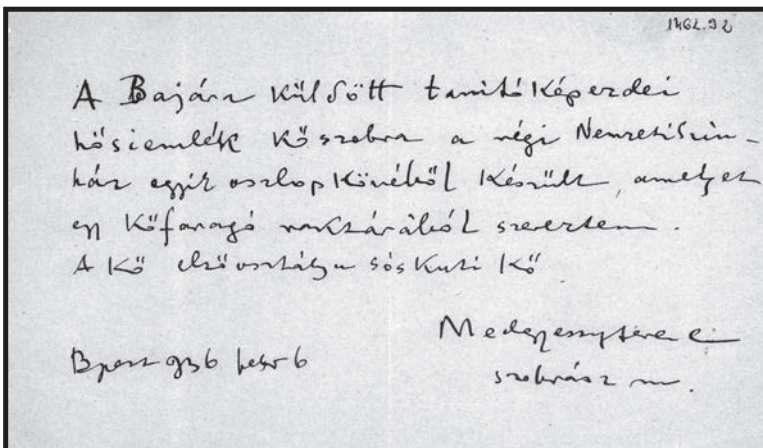 1462.92
A Bajára küldött tanitóképezdei
hősiemlék kőszobra a régi Nemzetiszin-
ház egyik oszlopkövéből készült, amelyet
egy kőfaragó raktárából szereztem.
A kő elsőosztályu sóskuti kő
Medgyessy Ferenc
Bpest 936 febr 6
szobrász m.